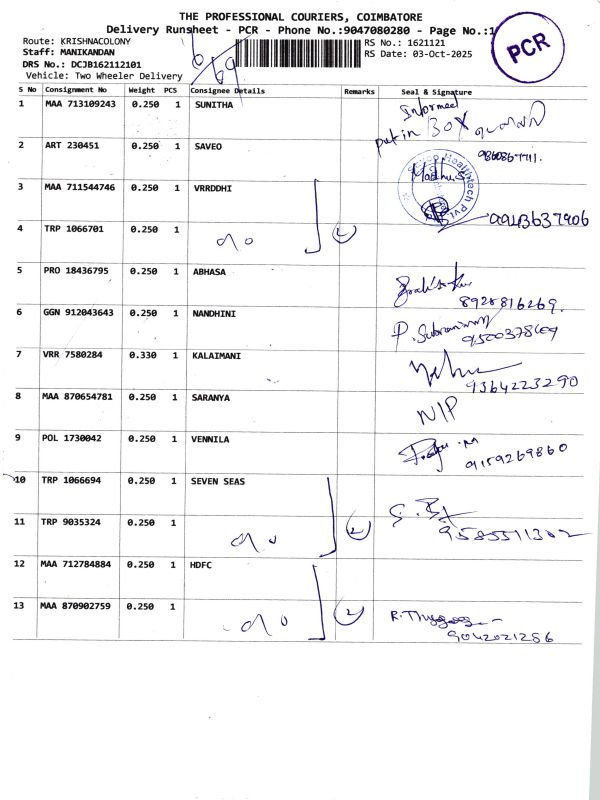 THE PROFESSIONAL COURIERS, COIMBATORE
Delivery Runsheet - PCR - Phone No.:9047080280 - Page No.:1
PCR
Route: KRISHNACOLONY
RS No.: 1621121
Staff: MANIKANDAN
RS Date: 03-Oct-2025
DRS No.: DCJB162112101
Vehicle: Two Wheeler Delivery
S No Consignment No Weight PCS Consignee Details Remarks Seal & Signature
1 MAA 713109243 0.250 1 SUNITHA Informed
put in BOX
2 ART 230451 0.250 1 SAVEO
3 MAA 711544746 0.250 1 VRRDDHI Madhu S
4 TRP 1066701 0.250 1 2 9943637906
5 PRO 18436795 0.250 1 ABHASA
8928816269
6 GGN 912043643 0.250 1 NANDHINI
7 VRR 7580284 0.330 1 KALAIMANI
9364223290
8 MAA 870654781 0.250 1 SARANYA N/P
9 POL 1730042 0.250 1 VENNILA
9159269860
10 TRP 1066694 0.250 1 SEVEN SEAS
11 TRP 9035324 0.250 1 2
12 MAA 712784884 0.250 1 HDFC
13 MAA 870902759 0.250 1 2
9042021286